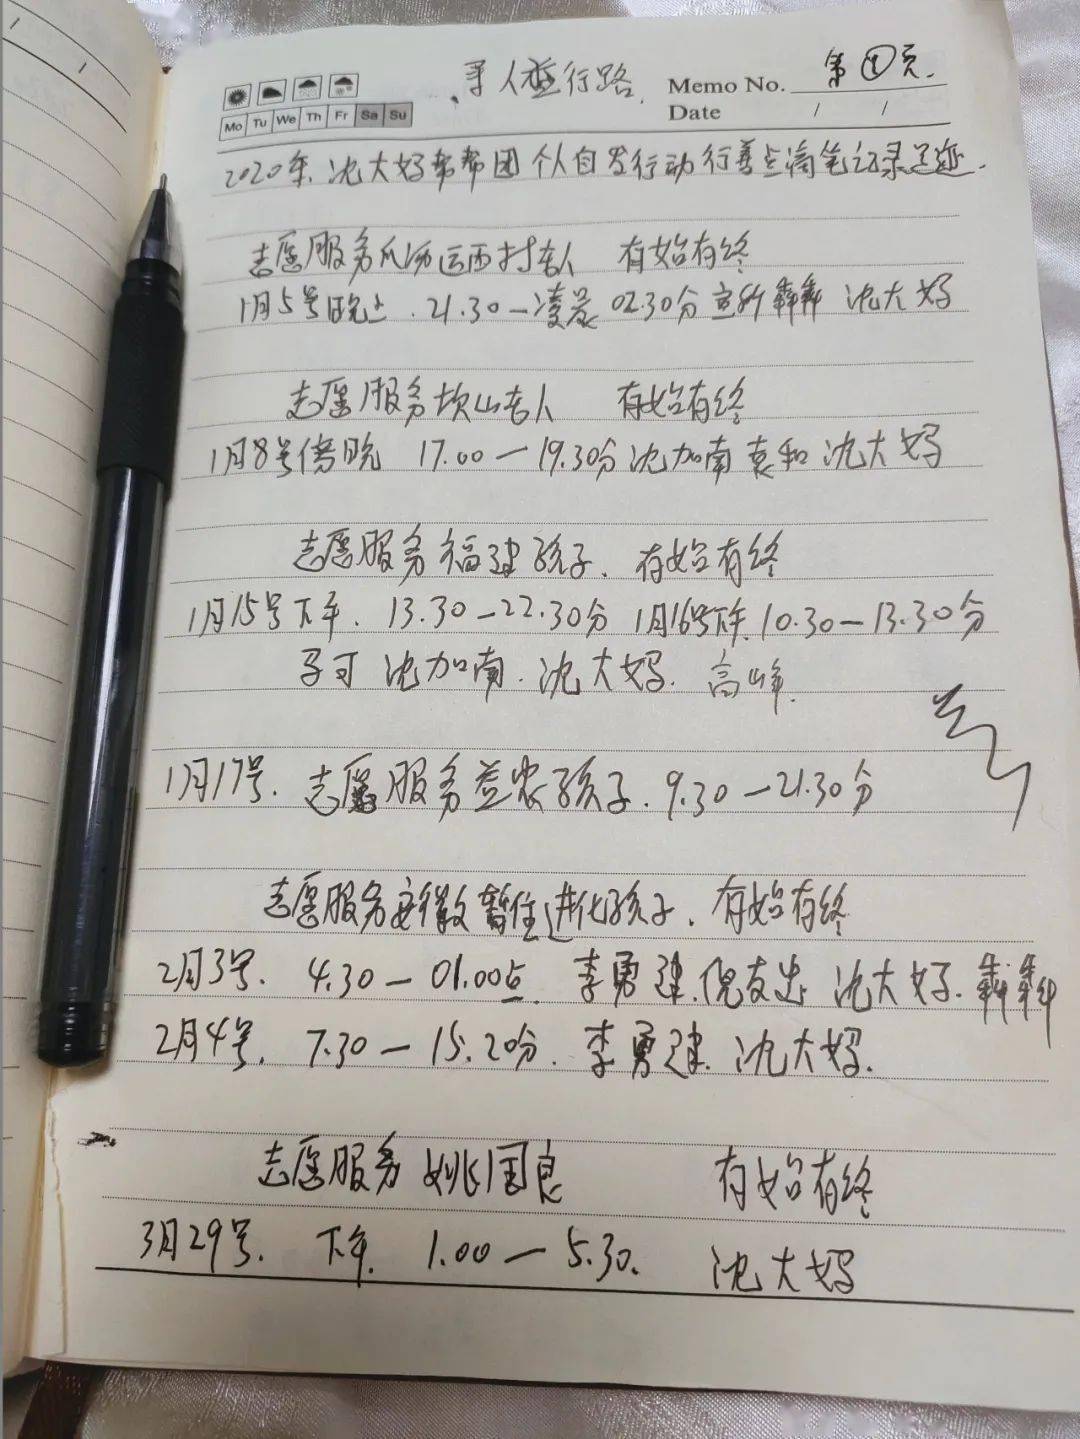 寻人益行路
第①页.
Memo No.
Date / /
Mo Tu We Th Fr Sa Su
2020年.沈大妈帮帮团个人自发行动行善点滴笔记录足迹.
志愿服务瓜沥运西村老人 有始有终
1月5号晚上.21.30一凌晨02.30分 沈大妈
志愿服务坎山老人 有始有终
1月8号傍晚 17.00一19.30分沈加南 袁和 沈大妈
志愿服务福建孩子. 有始有终
1月15号下午. 13.30一22.30分 1月16号下午.10.30一13.30分
子可 沈加南.沈大妈.高峰.
1月17号.志愿服务益农孩子.9.30一21.30分
志愿服务安徽暂住进化孩子.有始有终
2月3号. 4.30一01.00点. 李勇建.倪友忠 沈大妈.犇犇
2月4号. 7.30一15.20分.李勇建.沈大妈.
志愿服务姚国良 有始有终
3月29号. 下午. 1.00一5.30. 沈大妈